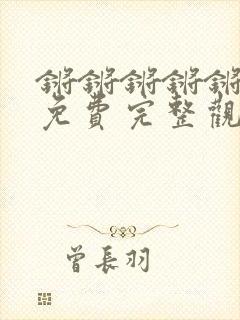 锵锵锵锵锵
免費完整觀
曾長羽